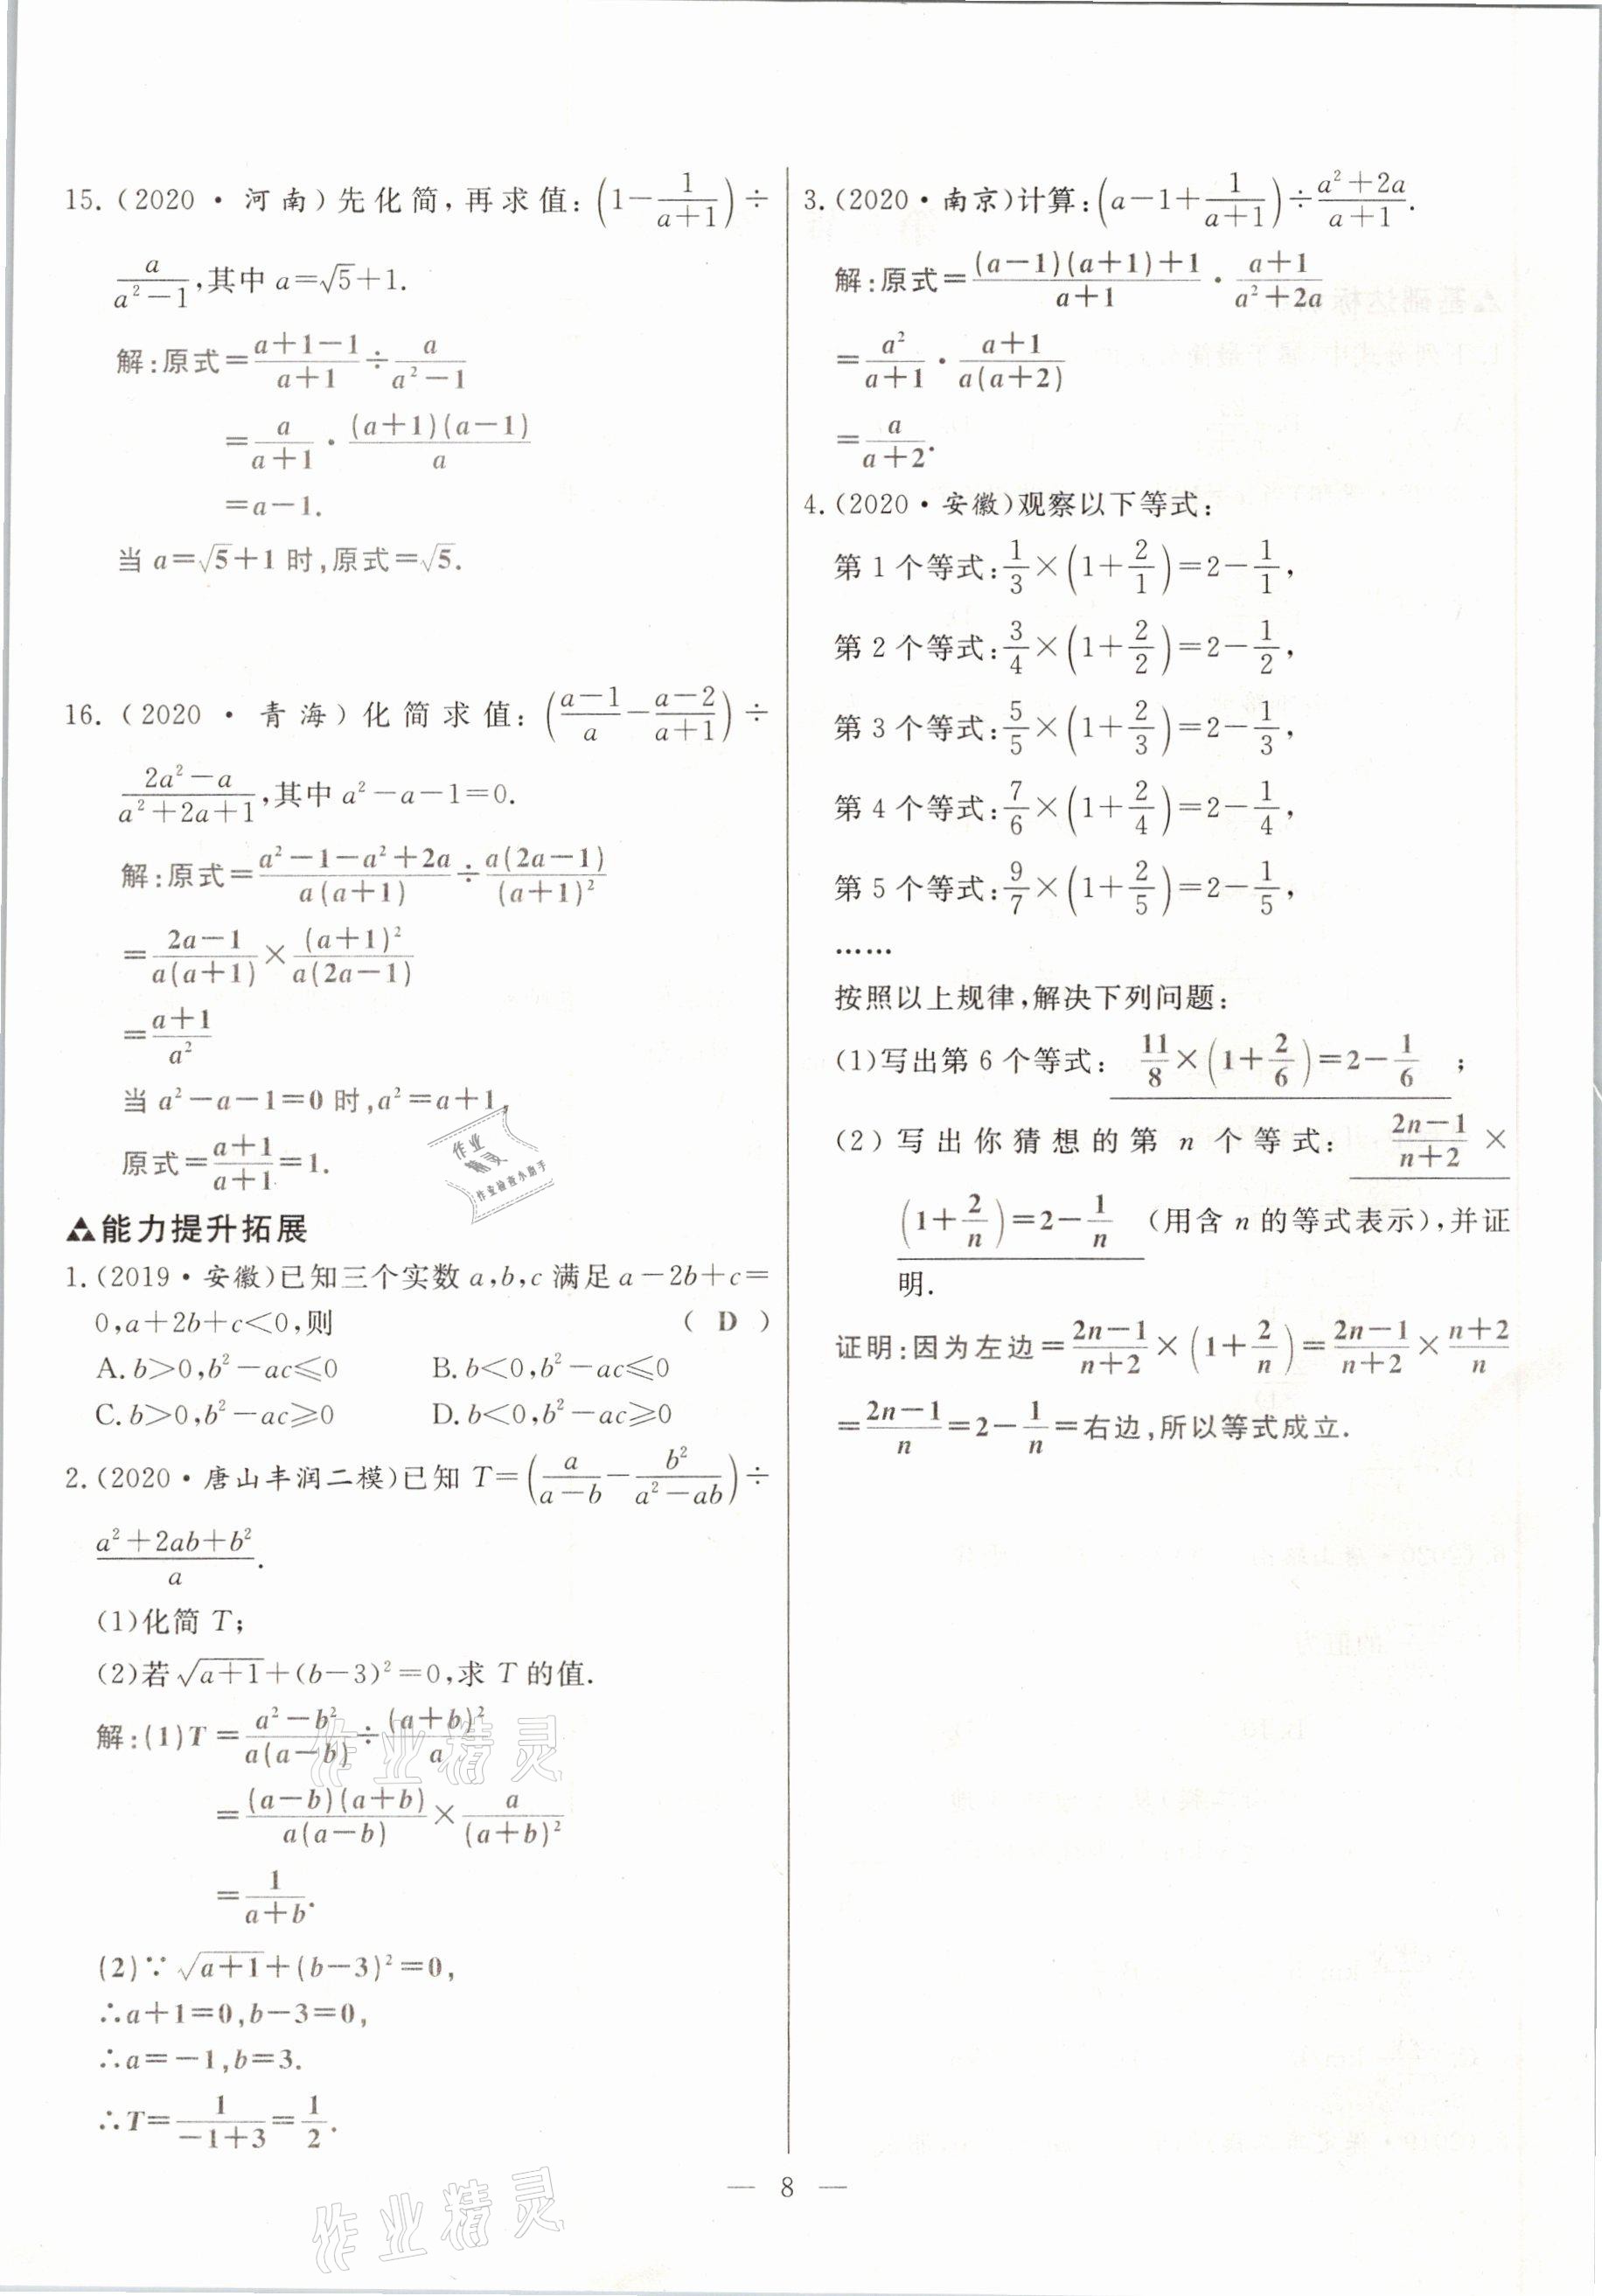 15.(2020·河南)先化简,再求值:(1-1/(a+1))÷
a/(a²-1),其中 a=√5+1.
解:原式=(a+1-1)/(a+1)÷a/(a²-1)
=a/(a+1)·(a+1)(a-1)/a
=a-1.
当 a=√5+1 时,原式=√5.
16.(2020·青海)化简求值:((a-1)/a-(a-2)/(a+1))÷
(2a²-a)/(a²+2a+1),其中 a²-a-1=0.
解:原式=(a²-1-a²+2a)/(a(a+1))÷a(2a-1)/(a+1)²
=(2a-1)/(a(a+1))×(a+1)²/(a(2a-1))
=(a+1)/a²
当 a²-a-1=0 时,a²=a+1,
原式=(a+1)/(a+1)=1.
能力提升拓展
1.(2019·安徽)已知三个实数 a,b,c 满足 a-2b+c=
0,a+2b+c<0,则 ( D )
A.b>0,b²-ac≤0 B.b<0,b²-ac≤0
C.b>0,b²-ac≥0 D.b<0,b²-ac≥0
2.(2020·唐山丰润二模)已知 T=(a/(a-b)-b²/(a²-ab))÷
(a²+2ab+b²)/a.
(1)化简 T;
(2)若√(a+1)+(b-3)²=0,求 T 的值.
解:(1)T=(a²-b²)/(a(a-b))÷(a+b)²/a
=(a-b)(a+b)/(a(a-b))×a/(a+b)²
=1/(a+b).
(2)∵√(a+1)+(b-3)²=0,
∴a+1=0,b-3=0,
∴a=-1,b=3.
∴T=1/(-1+3)=1/2.
3.(2020·南京)计算:(a-1+1/(a+1))÷(a²+2a)/(a+1).
解:原式=((a-1)(a+1)+1)/(a+1)·(a+1)/(a²+2a)
=a²/(a+1)·(a+1)/(a(a+2))
=a/(a+2).
4.(2020·安徽)观察以下等式:
第 1 个等式:1/3×(1+2/1)=2-1/1,
第 2 个等式:3/4×(1+2/2)=2-1/2,
第 3 个等式:5/5×(1+2/3)=2-1/3,
第 4 个等式:7/6×(1+2/4)=2-1/4,
第 5 个等式:9/7×(1+2/5)=2-1/5,
……
按照以上规律,解决下列问题:
(1)写出第 6 个等式: 11/8×(1+2/6)=2-1/6 ;
(2)写出你猜想的第 n 个等式: (2n-1)/(n+2)×
(1+2/n)=2-1/n (用含 n 的等式表示),并证
明.
证明:因为左边=(2n-1)/(n+2)×(1+2/n)=(2n-1)/(n+2)×(n+2)/n
=(2n-1)/n=2-1/n=右边,所以等式成立.
— 8 —
作业
精灵
作业检查小助手
作业精灵
作业精灵